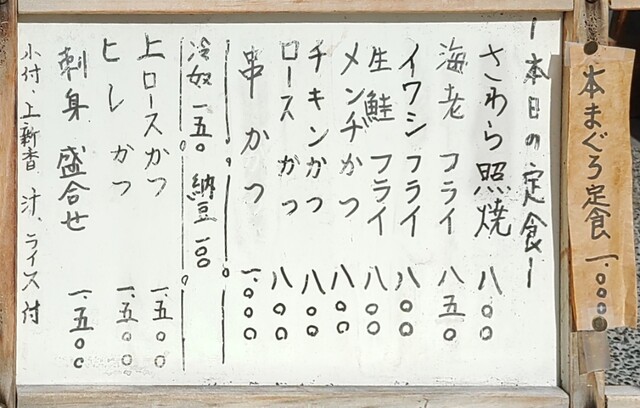 本まぐろ定食 一、〇〇〇
ー本日の定食ー
さわら照焼 八〇〇
海老フライ 八五〇
イワシフライ 八〇〇
生鮭フライ 八〇〇
メンチかつ 八〇〇
チキンかつ 八〇〇
ロースかつ 八〇〇
串かつ 一、〇〇〇
冷奴 一五〇 納豆 一〇〇
上ロースかつ 一、五〇〇
ヒレかつ 一、五〇〇
刺身盛合せ 一、五〇〇
小付、上新香 汁、ライス付